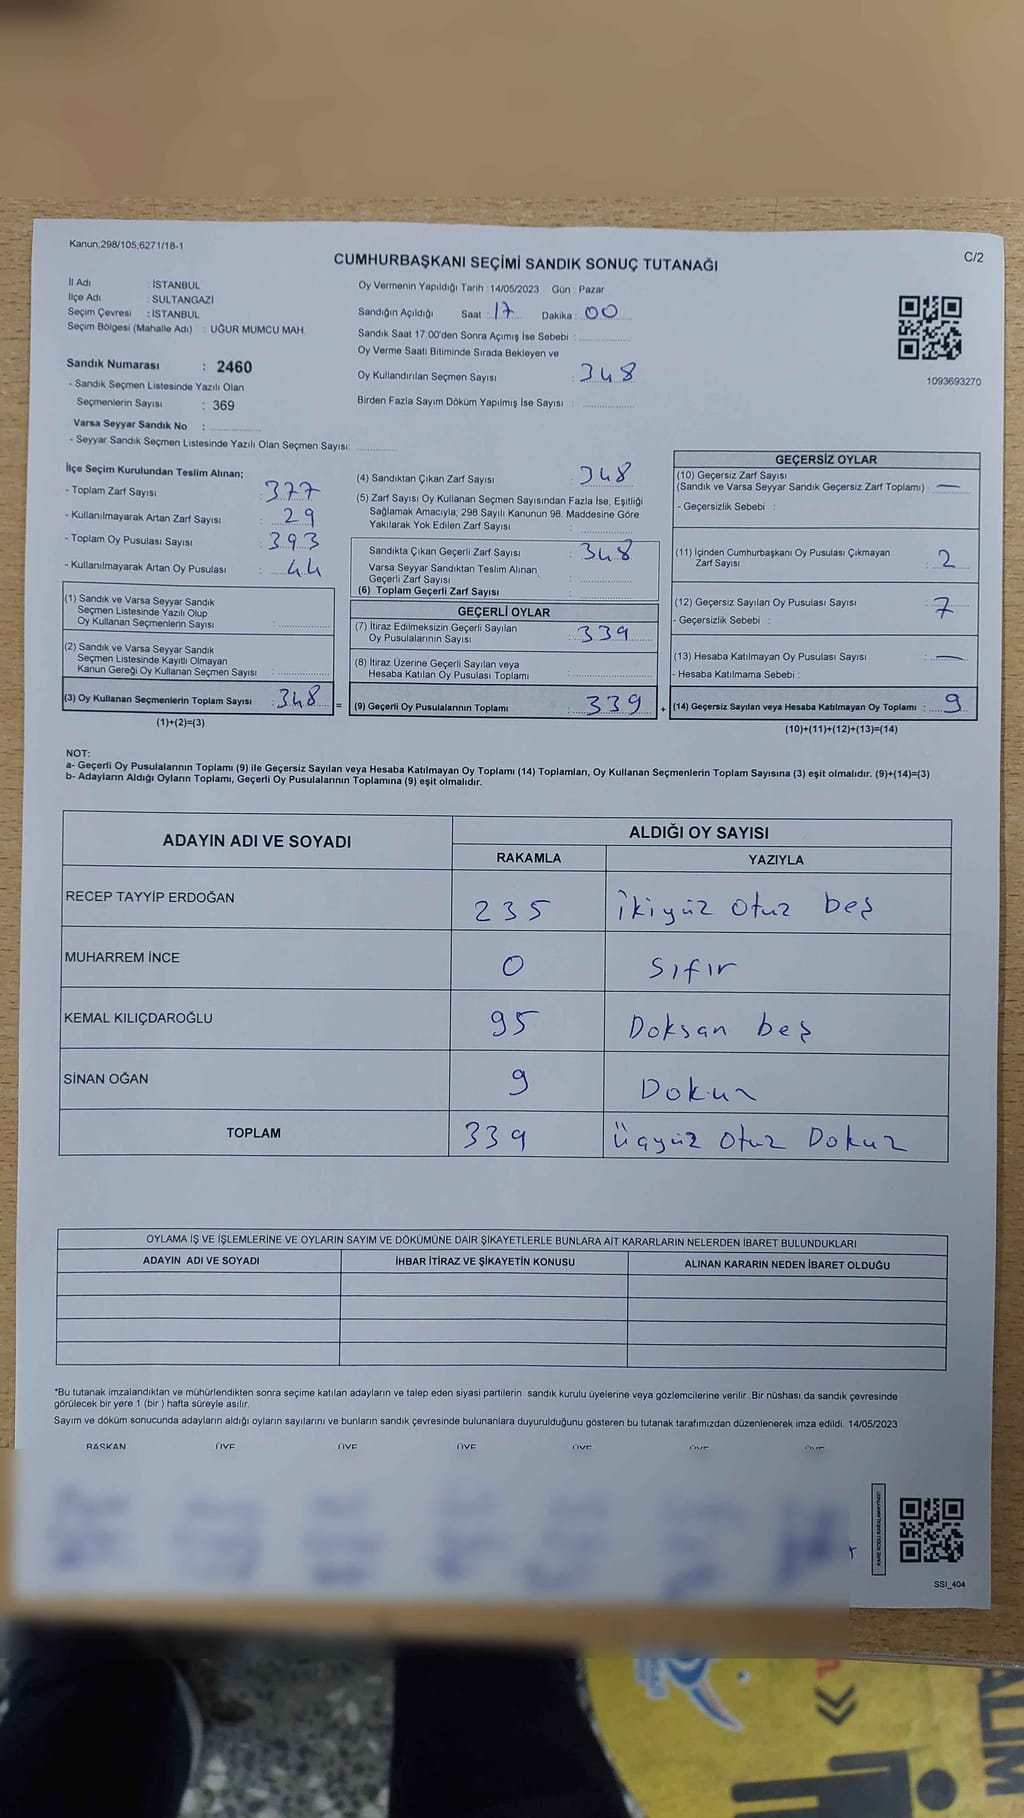 Kanun;298/105,6271/18-1
C/2
CUMHURBAŞKANI SEÇİMİ SANDIK SONUÇ TUTANAĞI
İl Adı : İSTANBUL
İlçe Adı : SULTANGAZİ
Seçim Çevresi : İSTANBUL
Seçim Bölgesi (Mahalle Adı) : UĞUR MUMCU MAH.
Sandık Numarası : 2460
- Sandık Seçmen Listesinde Yazılı Olan
Seçmenlerin Sayısı : 369
Varsa Seyyar Sandık No :
- Seyyar Sandık Seçmen Listesinde Yazılı Olan Seçmen Sayısı:
Oy Vermenin Yapıldığı Tarih : 14/05/2023 Gün : Pazar
Sandığın Açıldığı Saat : 17 Dakika : 00
Sandık Saat 17:00'den Sonra Açımış İse Sebebi :
Oy Verme Saati Bitiminde Sırada Bekleyen ve
Oy Kullandırılan Seçmen Sayısı : 348
Birden Fazla Sayım Döküm Yapılmış İse Sayısı :
1093693270
İlçe Seçim Kurulundan Teslim Alınan;
- Toplam Zarf Sayısı : 377
- Kullanılmayarak Artan Zarf Sayısı : 29
- Toplam Oy Pusulası Sayısı : 393
- Kullanılmayarak Artan Oy Pusulası : 44
(1) Sandık ve Varsa Seyyar Sandık
Seçmen Listesinde Yazılı Olup
Oy Kullanan Seçmenlerin Sayısı :
(2) Sandık ve Varsa Seyyar Sandık
Seçmen Listesinde Kayıtlı Olmayan
Kanun Gereği Oy Kullanan Seçmen Sayısı :
(3) Oy Kullanan Seçmenlerin Toplam Sayısı : 348 =
(1)+(2)=(3)
(4) Sandıktan Çıkan Zarf Sayısı : 348
(5) Zarf Sayısı Oy Kullanan Seçmen Sayısından Fazla İse, Eşitliği
Sağlamak Amacıyla; 298 Sayılı Kanunun 98. Maddesine Göre
Yakılarak Yok Edilen Zarf Sayısı :
Sandıkta Çıkan Geçerli Zarf Sayısı : 348
Varsa Seyyar Sandıktan Teslim Alınan
Geçerli Zarf Sayısı :
(6) Toplam Geçerli Zarf Sayısı :
GEÇERLİ OYLAR
(7) İtiraz Edilmeksizin Geçerli Sayılan
Oy Pusulalarının Sayısı : 339
(8) İtiraz Üzerine Geçerli Sayılan veya
Hesaba Katılan Oy Pusulası Toplamı :
(9) Geçerli Oy Pusulalarının Toplamı : 339 +
GEÇERSİZ OYLAR
(10) Geçersiz Zarf Sayısı
(Sandık ve Varsa Seyyar Sandık Geçersiz Zarf Toplamı) : —
- Geçersizlik Sebebi :
(11) İçinden Cumhurbaşkanı Oy Pusulası Çıkmayan
Zarf Sayısı : 2
(12) Geçersiz Sayılan Oy Pusulası Sayısı : 7
- Geçersizlik Sebebi :
(13) Hesaba Katılmayan Oy Pusulası Sayısı : —
- Hesaba Katılmama Sebebi :
(14) Geçersiz Sayılan veya Hesaba Katılmayan Oy Toplamı : 9
(10)+(11)+(12)+(13)=(14)
NOT:
a- Geçerli Oy Pusulalarının Toplamı (9) ile Geçersiz Sayılan veya Hesaba Katılmayan Oy Toplamı (14) Toplamları, Oy Kullanan Seçmenlerin Toplam Sayısına (3) eşit olmalıdır. (9)+(14)=(3)
b- Adayların Aldığı Oyların Toplamı, Geçerli Oy Pusulalarının Toplamına (9) eşit olmalıdır.
ADAYIN ADI VE SOYADI
ALDIĞI OY SAYISI
RAKAMLA YAZIYLA
RECEP TAYYİP ERDOĞAN 235 İkiyüz otuz beş
MUHARREM İNCE 0 Sıfır
KEMAL KILIÇDAROĞLU 95 Doksan beş
SİNAN OĞAN 9 Dokuz
TOPLAM 339 Üçyüz otuz Dokuz
OYLAMA İŞ VE İŞLEMLERİNE VE OYLARIN SAYIM VE DÖKÜMÜNE DAİR ŞİKAYETLERLE BUNLARA AİT KARARLARIN NELERDEN İBARET BULUNDUKLARI
ADAYIN ADI VE SOYADI İHBAR İTİRAZ VE ŞİKAYETİN KONUSU ALINAN KARARIN NEDEN İBARET OLDUĞU
*Bu tutanak imzalandıktan ve mühürlendikten sonra seçime katılan adayların ve talep eden siyasi partilerin sandık kurulu üyelerine veya gözlemcilerine verilir .Bir nüshası da sandık çevresinde
görülecek bir yere 1 (bir ) hafta süreyle asılır.
Sayım ve döküm sonucunda adayların aldığı oyların sayılarını ve bunların sandık çevresinde bulunanlara duyurulduğunu gösteren bu tutanak tarafımızdan düzenlenerek imza edildi. 14/05/2023
BAŞKAN ÜYE ÜYE ÜYE ÜYE ÜYE ÜYE
SSI_404